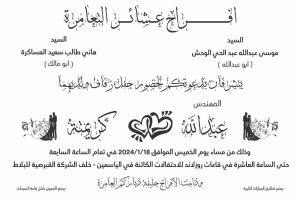 افراح عشائر التعامرة
السيد
موسى عبدالله عبد الحي الوحش
( ابو عبدالله )
السيد
هاني طالب سعيد العساكرة
( ابو مالك )
يتشرفان بدعوتكم لحضور حفل زفاف ولديهما
المهندس
عبدالله
كريمته
وذلك من مساء يوم الخميس الموافق 2024/1/18 في تمام الساعة السابعة
حتى الساعة العاشرة في قاعات روزلاند للاحتفالات الكائنة في الياسمين - خلف الشركة القبرصية للبلاط
ودامت الافراح حليفة دياركم العامرة